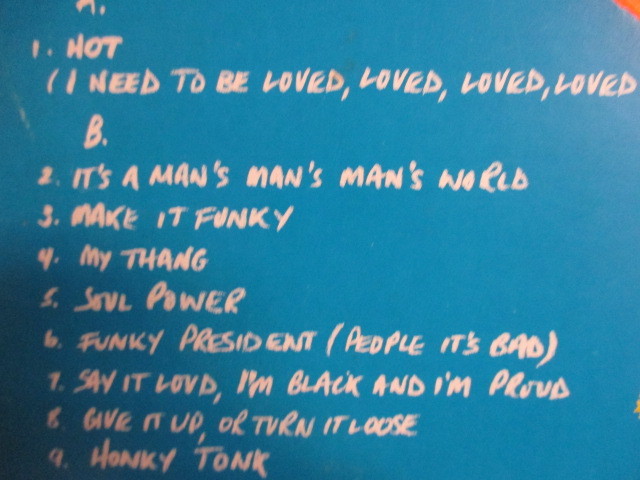 A.
1. HOT
(I NEED TO BE LOVED, LOVED, LOVED, LOVED
B.
2. IT'S A MAN'S MAN'S MAN'S WORLD
3. MAKE IT FUNKY
4. MY THANG
5. SOUL POWER
6. FUNKY PRESIDENT (PEOPLE IT'S BAD)
7. SAY IT LOUD, I'M BLACK AND I'M PROUD
8. GIVE IT UP, OR TURN IT LOOSE
9. HONKY TONK